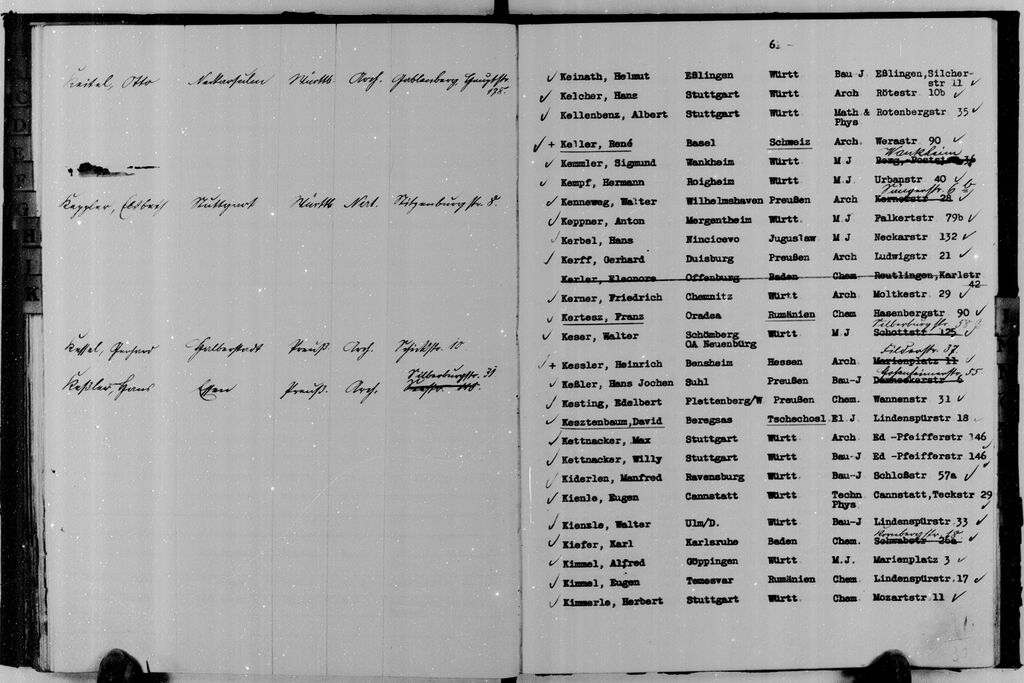 Keitel, Otto Neckarsulm Württb. Arch. Gablenberg, Hauptstr.
175.
Keppler, Elsbeth Stuttgart Württb. Nat. Stitzenburgstr. 8.
Kessel, Gerhard Halberstadt Preuß. Arch. Schickstr. 10
Silberburgstr. 31
Keßler, Hans Essen Preuß. Arch.
6. -
✓ Keinath, Helmut Eßlingen Württ Bau-J Eßlingen, Silcher-
str 11 ✓
✓ Kelcher, Hans Stuttgart Württ Arch Rötestr 10b ✓
✓ Kellenbenz, Albert Stuttgart Württ Math & Rotenbergstr 35 ✓
Phys
✓ + Keller, René Basel Schweiz Arch. Werastr 90 ✓
Wankheim
✓ Kemmler, Sigmund Wankheim Württ M J
✓ Kempf, Hermann Roigheim Württ M.J. Urbanstr 40 ✓
Sängerstr. 6
✓ Kenneweg, Walter Wilhelmshaven Preußen Arch Kernerstr 28 ✓
✓ Keppner, Anton Mergentheim Württ M J Falkertstr 79b ✓
✓ Kerbel, Hans Nincicevo Juguslaw M J Neckarstr 132 ✓
✓ Kerff, Gerhard Duisburg Preußen Arch Ludwigstr 21 ✓
Kerler, Eleonore Offenburg Baden Chem Reutlingen, Karlstr
42
✓ Kerner, Friedrich Chemnitz Württ Arch Moltkestr 29 ✓
✓ Kertesz, Franz Oradea Rumänien Chem Hasenbergstr 90 ✓
Silberburgstr. 58
✓ Keser, Walter Schömberg Württ M J Schottstr 125 ✓
OA Neuenbürg
Filderstr. 37.
✓ + Kessler, Heinrich Bensheim Hessen Arch Marienplatz 11 ✓
55
✓ Keßler, Hans Jochen Suhl Preußen Bau-J Danneckerstr 6
✓ Kesting, Edelbert Plettenberg/W Preußen Chem Wannenstr 31 ✓
✓ Kesztenbaum, David Beregsas Tschechosl. El J Lindenspürstr 18
✓ Kettnacker, Max Stuttgart Württ Arch Ed -Pfeifferstr 146
✓ Kettnacker, Willy Stuttgart Württ Bau-J Ed -Pfeifferstr 146
✓ Kiderlen, Manfred Ravensburg Württ Bau-J Schloßstr 57a ✓
✓ Kienle, Eugen Cannstatt Württ Techn Cannstatt, Teckstr 29
Phys ✓
✓ Kienzle, Walter Ulm/D. Württ Bau-J Lindenspürstr 33 ✓
Rombergstr. 18
✓ Kiefer, Karl Karlsruhe Baden Chem. Schwabstr 26a ✓
✓ Kimmel, Alfred Göppingen Württ M.J. Marienplatz 3 ✓
✓ Kimmel, Eugen Temesvar Rumänien Chem Lindenspürstr. 17 ✓
✓ Kimmerle, Herbert Stuttgart Württ Chem. Mozartstr 11 ✓
1.
30